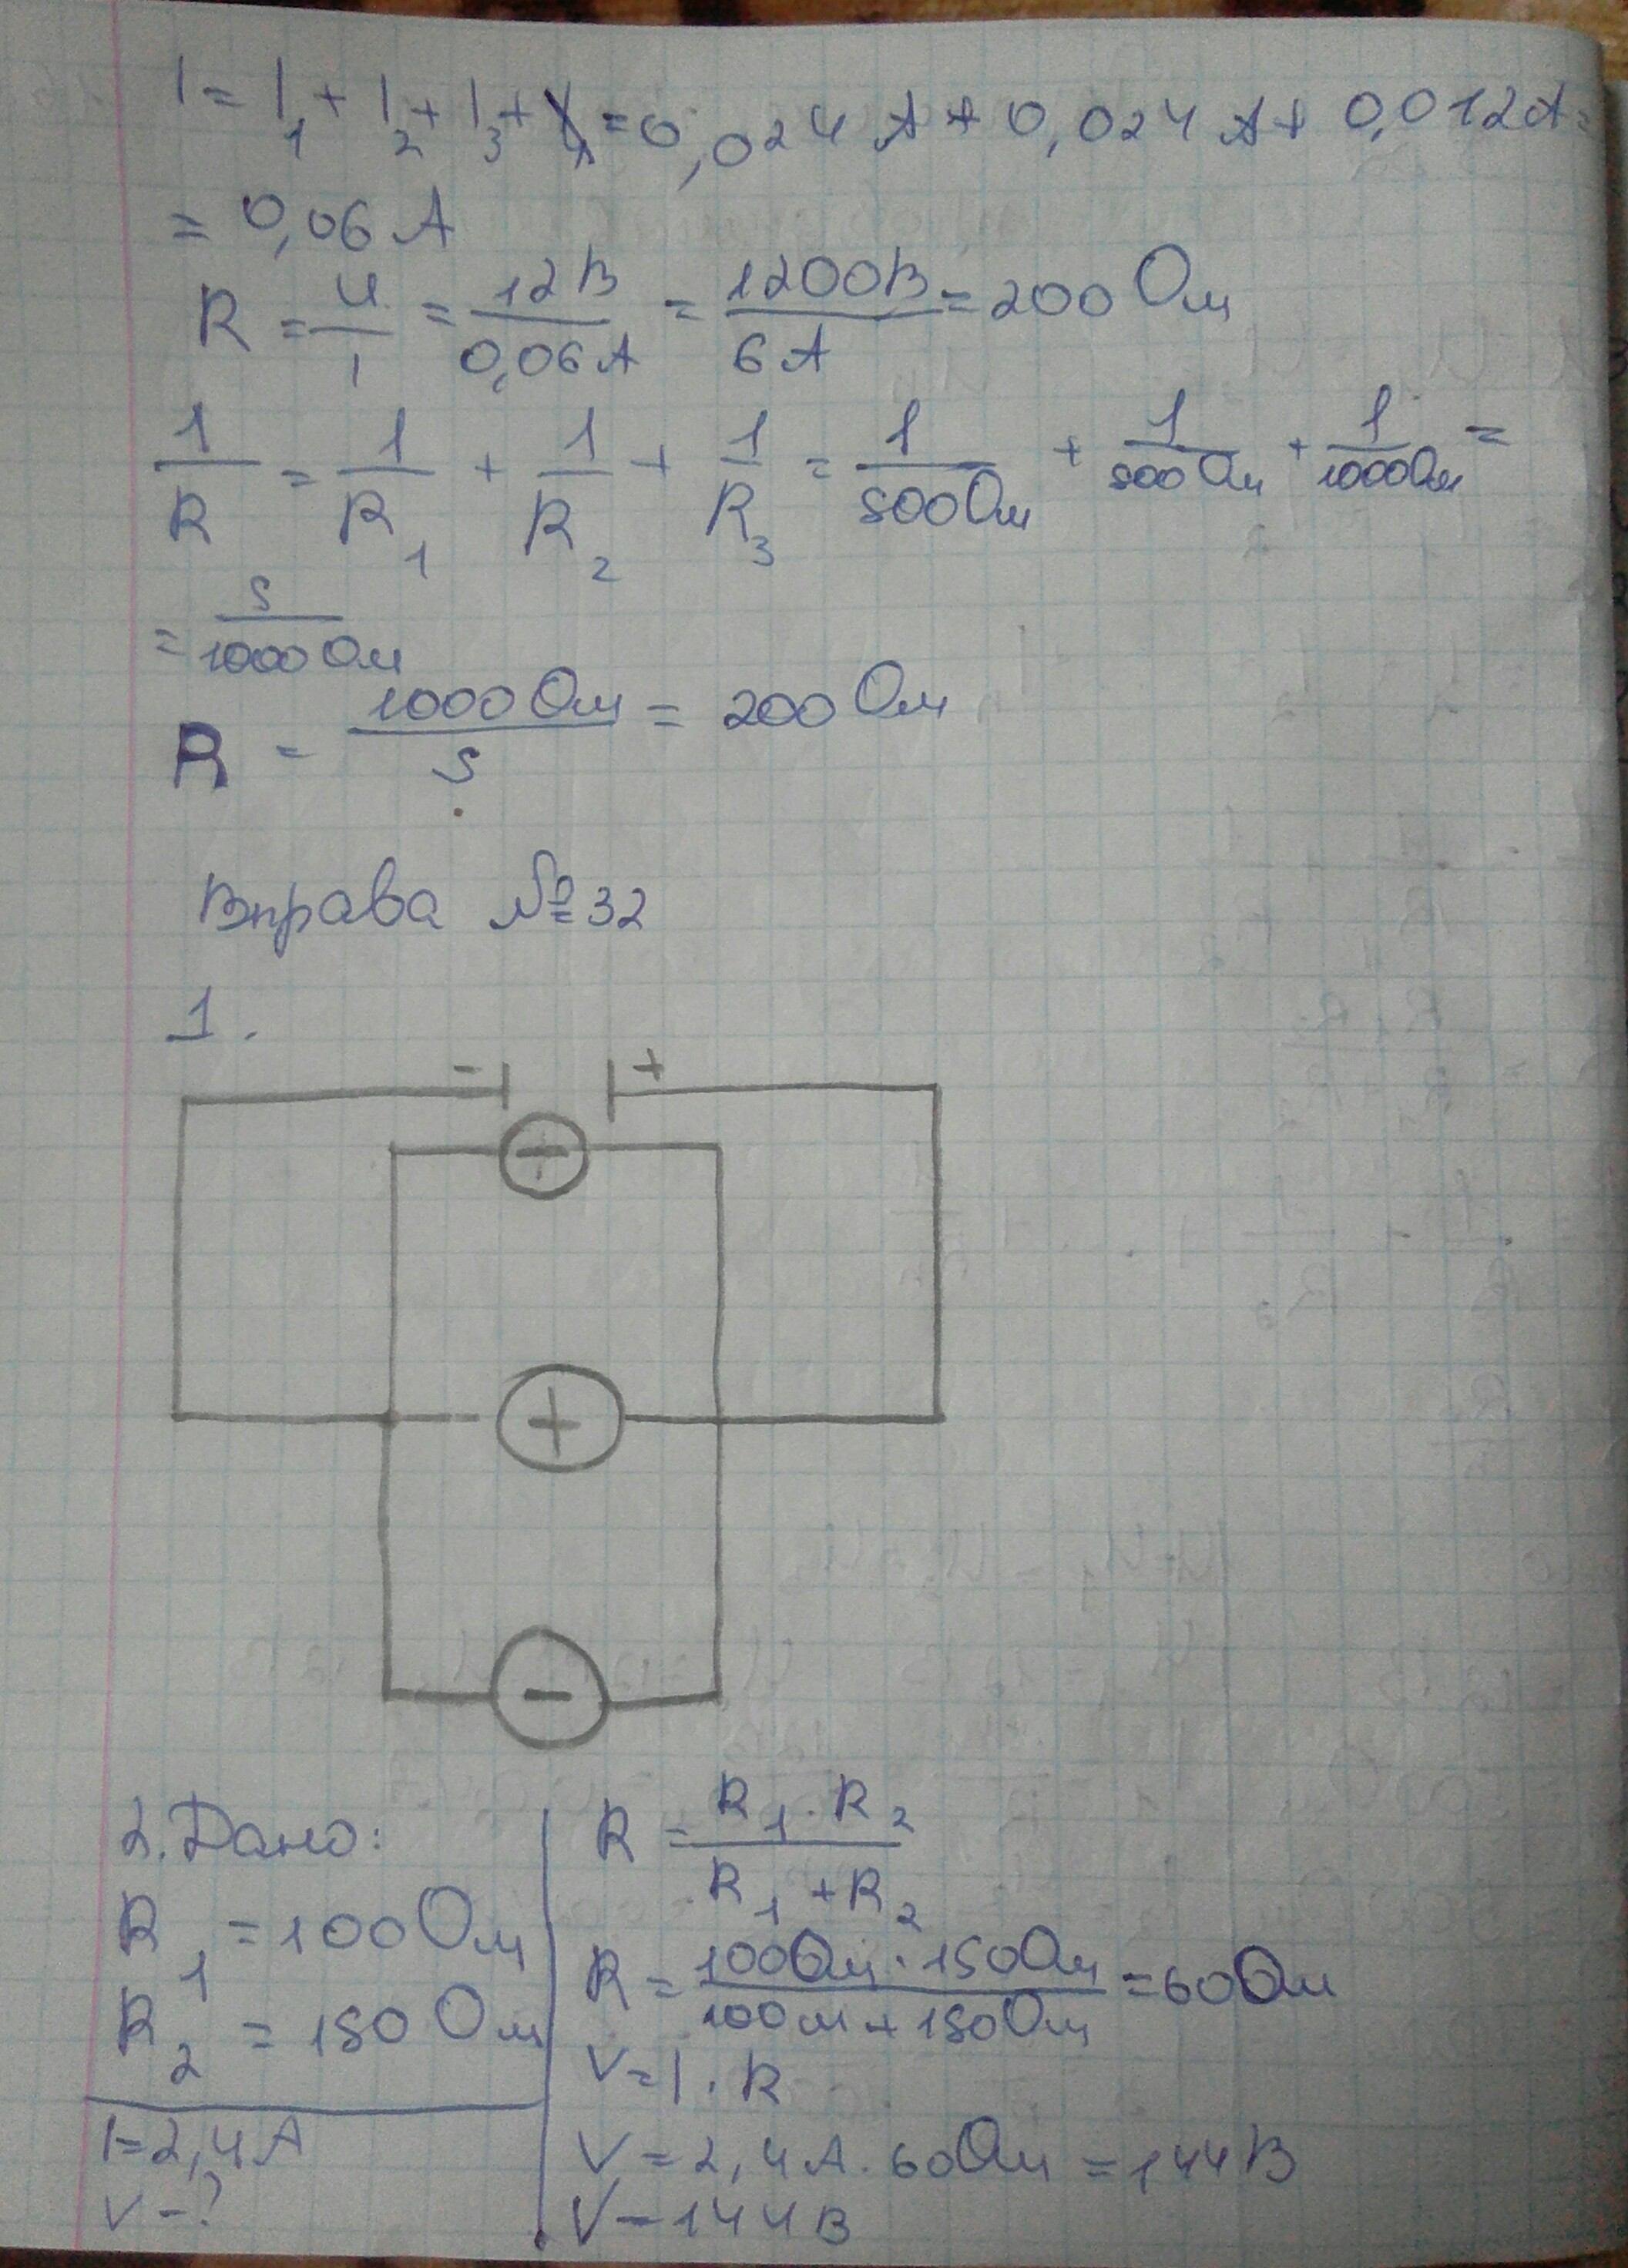 I = I₁ + I₂ + I₃ + = 0,024 А + 0,024 А + 0,012 А =
= 0,06 А
R = U/I = 12В/0,06А = 1200В/6А = 200 Ом
1/R = 1/R₁ + 1/R₂ + 1/R₃ = 1/500Ом + 1/500Ом + 1/1000Ом =
= 5/1000 Ом
R = 1000 Ом/5 = 200 Ом
Вправа №32
1.
- +
+
+
-
2. Дано:
R₁ = 100 Ом
R₂ = 150 Ом
I = 2,4 А
V - ?
R = R₁ · R₂/R₁ + R₂
R = 100Ом · 150Ом/100м + 150Ом = 60Ом
V = I · R
V = 2,4 А · 60Ом = 144 В
V - 144 В